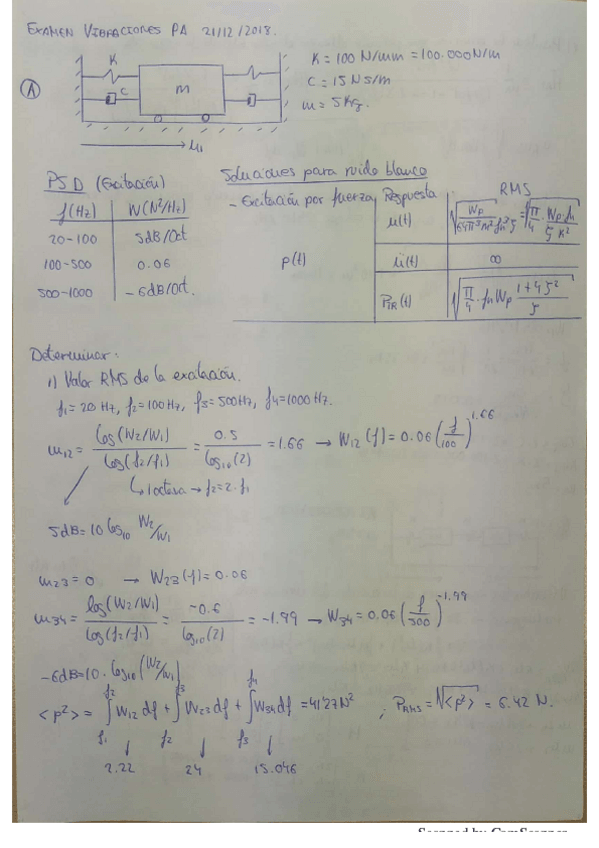 EXAMEN VIBRACIONES PA 21/12/2018.
K = 100 N/mm = 100.000 N/m
C = 15 N s/m
m = 5 Kg.
A
K
C
m
u1
PSD (Excitación)
f (Hz) W (N²/Hz)
20-100 5dB/Oct
100-500 0.06
500-1000 -6dB/Oct.
Soluciones para ruido blanco
- Excitación por fuerza Respuesta RMS
p(t)
u(t) √(Wp / 64π³m² fn³ ζ) = √(π/4 · Wp · fn / ζ K²)
ü(t) ∞
PTR(t) √(π/4 · fn Wp (1+4ζ²)/ζ)
Determinar:
1) Valor RMS de la excitación.
f1 = 20 Hz, f2 = 100 Hz, f3 = 500 Hz, f4 = 1000 Hz.
m12 = log(W2/W1) / log(f2/f1) = 0.5 / log10(2) = 1.66 → W12 (f) = 0.06 (f/100)^1.66
↳ 1 octava → f2 = 2·f1
5dB = 10 log10 W2/W1
m23 = 0 → W23 (f) = 0.06
m34 = log(W2/W1) / log(f2/f1) = -0.6 / log10(2) = -1.99 → W34 = 0.06 (f/500)^-1.99
-6dB = 10 · log10 (W2/W1)
<p²> = ∫f1^f2 W12 df + ∫f2^f3 W23 df + ∫f3^f4 W34 df = 41'27 N² ; PRMS = √<p²> = 6.42 N.
↓ ↓ ↓
2.22 24 15.046
Scanned by CamScanner